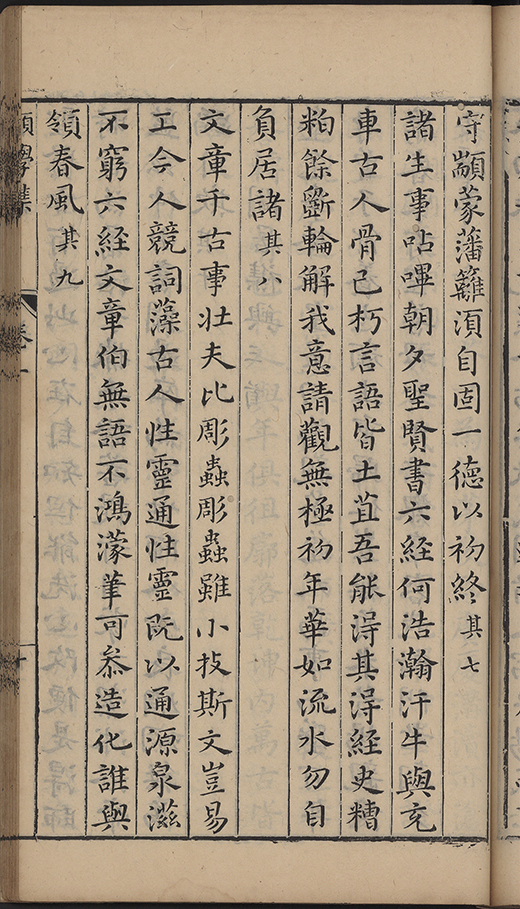 守顓蒙藩籬湏自固一德以初終其七
諸生事呫嗶朝夕聖賢書六經何浩瀚汗牛與充
車古人骨已朽言語皆土苴吾能淂其淂經史糟
粕餘斵輪解我意請觀無極初年華如流水勿自
負居諸其八
文章千古事壯夫比彫蟲彫蟲雖小技斯文豈易
工今人競詞藻古人性靈通性靈旣以通源泉滋
不窮六經文章伯無語不鴻濛筆可叅造化誰與
領春風其九
學集
卷一
十